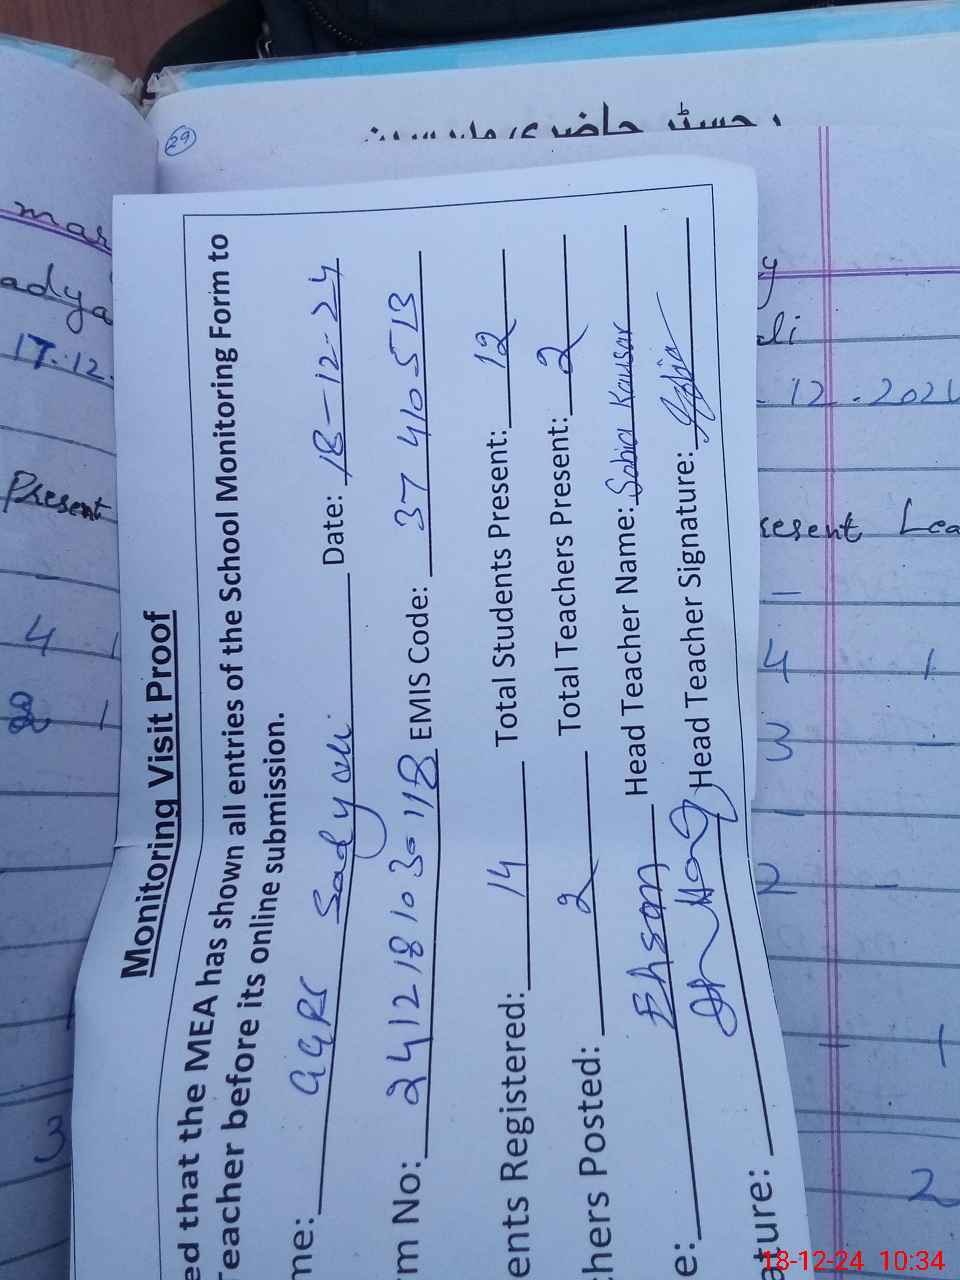 Monitoring Visit Proof
ed that the MEA has shown all entries of the School Monitoring Form to
Teacher before its online submission.
me: GGPS Sadyali Date: 18-12-24
rm No: 241218103118 EMIS Code: 37410513
ents Registered: 14 Total Students Present: 12
chers Posted: 2 Total Teachers Present: 2
e: Ehsan Head Teacher Name: Sabia Kausar
ature: Head Teacher Signature:
29
رجسٹر حاضری مدرسین
mar
adya
17.12.
Present
4 1
1
3
y
li
.12.202
resent Lea
-
4 1
3 -
-
2 -
- 1
2
18-12-24 10:34